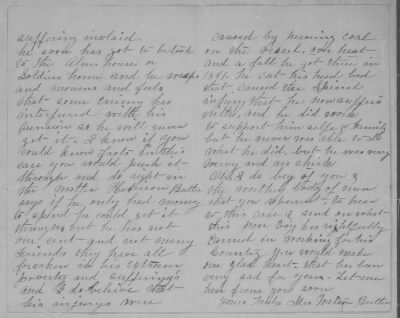 suffering invlaid.
he soon has got to be took
to the Alms house or
Soldiers home and he weeps
and mourns and feels
that some enemy has
interfered with his
pension so he will never
get it. I know if you
would know facts in this
case you would push it
through and do right in
the matter Butler
says if he only had money
to spend he could get it
through but he has not
one cent and not many
friends they have all
forsaken in his extream
poverty and sufferings
and I do believe that
his injurys were
caused by heaving coal
on the vessel, over heat
and a fall he got there in
1861. he cut his head bad
that caused the Spinal
injury that he now suffers
with, and he did work
to support him self & family
but he never was able to do
what he did, but he was very
and sick
Oh I do beg of you &
the worthey body of men
that you represent to hear
to this case & send on what
this poor boy has rightfully
earned in working for his
Country You would make
one glad heart that has been
very sad for years. Let me
hear from you soon
Yours Truly Mrs Watson Butler